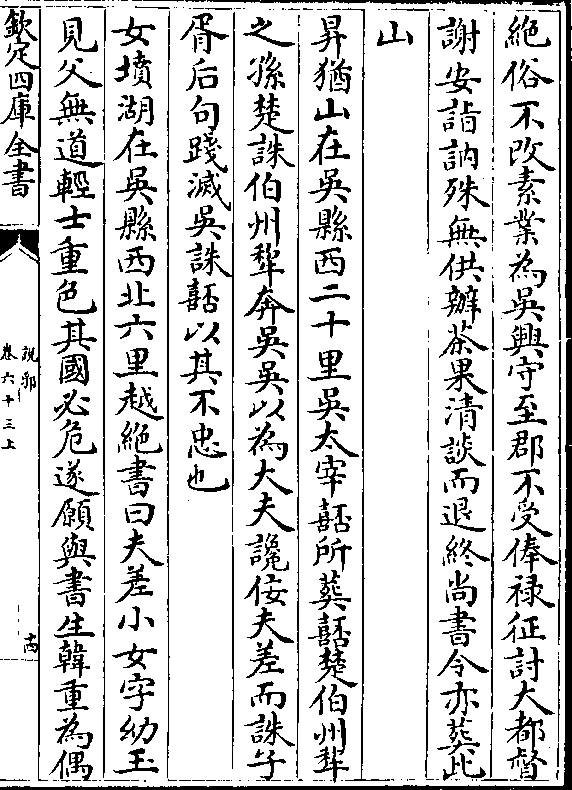 絶俗不改素業為吳興守至郡不受俸禄征討大都督
謝安詣訥殊無供辦茶果清談而退終尚書令亦葬此
山
昇猶山在吳縣西二十里吳太宰嚭所葬嚭楚伯州犂
之孫楚誅伯州犂奔吳吳以為大夫讒佞夫差而誅子
胥后句踐滅吳誅嚭以其不忠也
女墳湖在吳縣西北六里越絶書曰夫差小女字幼玉
見父無道輕士重色其國必危遂願與書生韓重為偶
欽定四庫全書
說郛
卷六十三上
十四